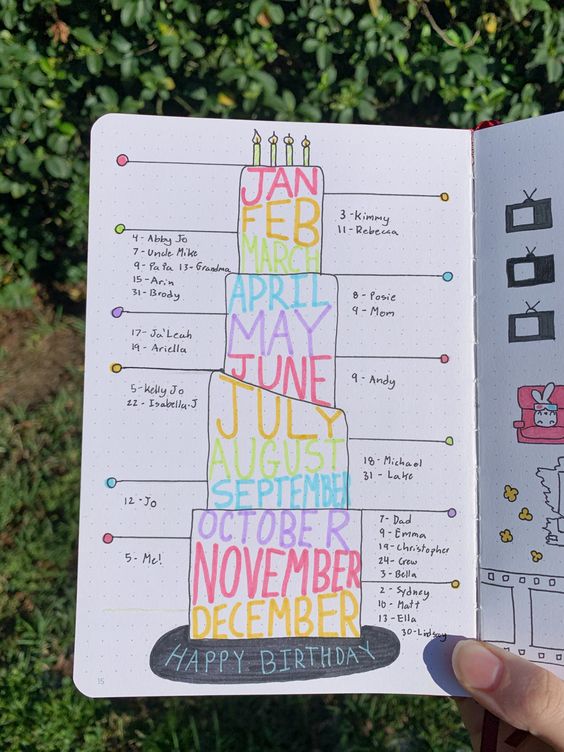 JAN
FEB
3 - Kimmy
11 - Rebecca
MARCH
4 - Abby Jo
7 - Uncle Mike
9 - PaPa 13 - Grandma
15 - Arin
31 - Brody
APRIL
8 - Posie
9 - Mom
MAY
17 - Ja'Leah
19 - Ariella
JUNE
9 - Andy
JULY
5 - Kelly Jo
22 - Isabella-J
AUGUST
18 - Michael
31 - Lake
SEPTEMBER
12 - Jo
OCTOBER
7 - Dad
9 - Emma
19 - Christopher
24 - Crew
3 - Bella
NOVEMBER
5 - Me!
DECEMBER
2 - Sydney
10 - Matt
13 - Ella
30 - Lindsay
HAPPY BIRTHDAY
15